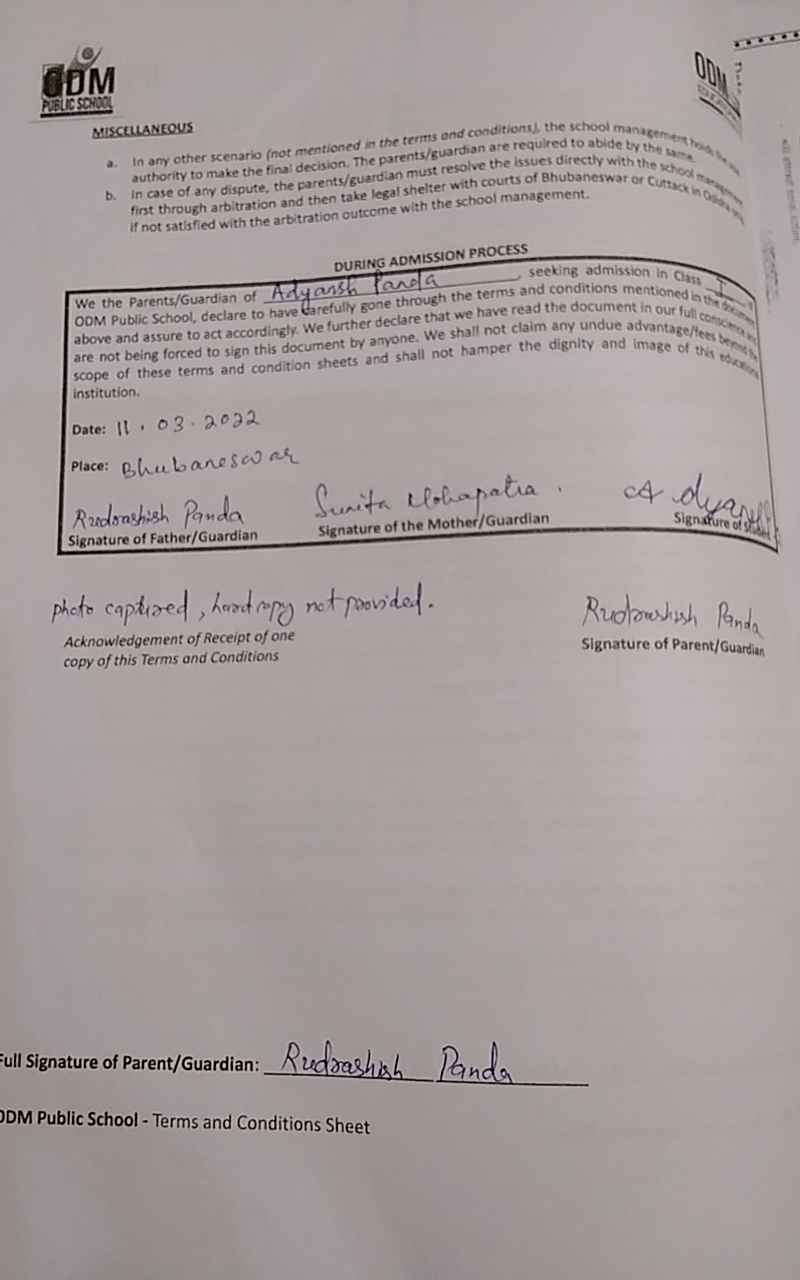 ODM
PUBLIC SCHOOL
ODM
MISCELLANEOUS
a. In any other scenario (not mentioned in the terms and conditions), the school management holds the
authority to make the final decision. The parents/guardian are required to abide by the same.
b. In case of any dispute, the parents/guardian must resolve the issues directly with the school management
first through arbitration and then take legal shelter with courts of Bhubaneswar or Cuttack in Odisha
if not satisfied with the arbitration outcome with the school management.
DURING ADMISSION PROCESS
We the Parents/Guardian of Adyansh Panda, seeking admission in Class I
ODM Public School, declare to have carefully gone through the terms and conditions mentioned in the document
above and assure to act accordingly. We further declare that we have read the document in our full conscience
are not being forced to sign this document by anyone. We shall not claim any undue advantage/fees beyond the
scope of these terms and condition sheets and shall not hamper the dignity and image of this educational
institution.
Date: 11.03.2022
Place: Bhubaneswar
Rudrashish Panda Sunita Mohapatra. Adyansh
Signature of Father/Guardian Signature of the Mother/Guardian Signature of Student
photo captured, hard copy not provided. Rudrashish Panda
Acknowledgement of Receipt of one Signature of Parent/Guardian
copy of this Terms and Conditions
Full Signature of Parent/Guardian: Rudrashish Panda
ODM Public School - Terms and Conditions Sheet